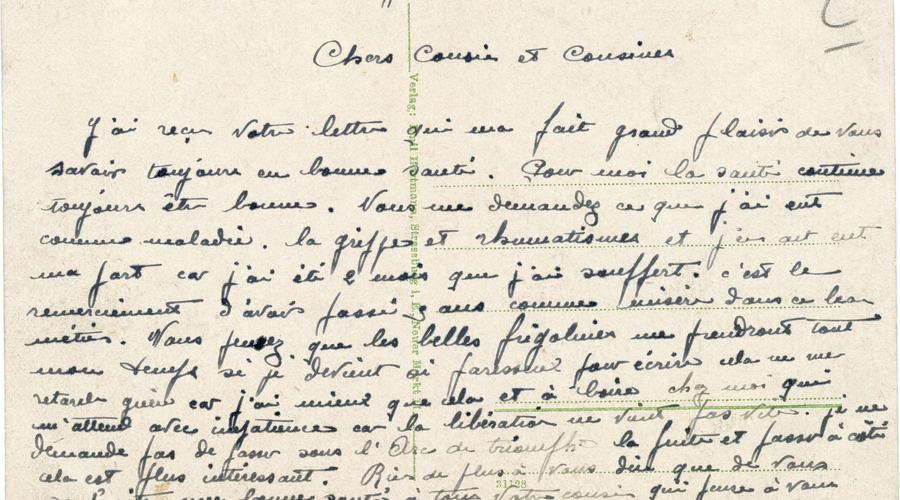 Chers Cousin et Cousines
J'ai reçu votre lettre qui ma fait grand plaisir de vous
savoir toujours en bonne santé. Pour moi la santé continue
toujours être bonne. Vous me demandez ce que j'ai eut
comme maladie. la grippe et rhumatismes et j'en ait eut
ma part car j'ai été 2 mois que j'ai souffert. c'est le
remerciement d'avoir passé ans comme misère dans ce beau
métier. Vous pensez que les belles frigolines me prendront tout
mon temps si je devient si paresseux pour écrire cela ne me
retarde guère car j'ai mieux que cela et à boire chez moi qui
m'attend avec impatience car la libération ne vient pas vite. je ne
demande pas de passer sous l'Arc de triomphe la fuite et passer à côté
cela est plus intéressant. Rien de plus à vous dire que de vous
bonne santé à tous votre cousin qui pense à vous
Verlag: Emil Hartmann, Strassburg i. E., Neuer Markt
31128